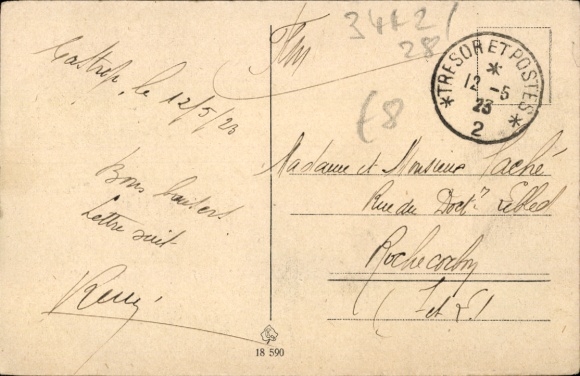 Castrop, le 12/5/23
Bons baisers.
Lettre suit
René
FM
34k2/
28
£8
TRESOR ET POSTES
12 -5
23
2
Madame et Monsieur Taché
Rue du Doct.r
Rochecorbon
(I et L)
18 590